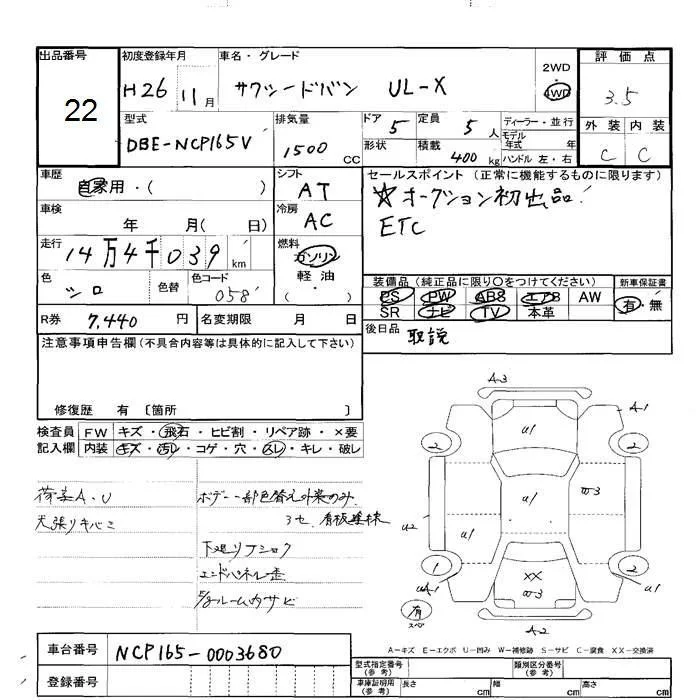 出品番号
22
初度登録年月
H26 11月
車名・グレード
サクシードバン UL-X
2WD
4WD
評価点
3.5
外装 内装
C C
型式
DBE-NCP165V
排気量
1500 CC
ドア 5
定員 5人
形状
積載 400kg
ディーラー・並行
モデル年式 年
ハンドル 左・右
車歴
自家用・( )
シフト
AT
セールスポイント(正常に機能するものに限ります)
☆オークション初出品!
ETC
車検
年 月( 日)
冷房
AC
走行
14万4千039km
燃料
ガソリン
軽油
( )
色
シロ
色替
色コード
058
装備品(純正品に限り○をつけてください)
PS PW ABS エアB AW
SR ナビ TV 本革
新車保証書
有・無
R券 7,440円
名変期限 月 日
後日品 取説
注意事項申告欄(不具合内容等は具体的に記入して下さい)
修復歴 有 〔箇所 〕
検査員記入欄
FW キズ・飛石・ヒビ割・リペア跡・×要
内装 キズ・汚レ・コゲ・穴・スレ・キレ・破レ
荷室A・U
天張リキバミ
ボデー一部色替え外装のみ
3セ 看板塗抹
下廻リ
エンドパネル歪
ルーム内サビ
A-3
A-1
U1
2
2
U1
U3
U2
U1
1
2
UA1
U1
XX
U3
有
スペア
A-2
A-キズ E-エクボ U-凹み W-補修跡 S-サビ C-腐食 XX-交換済
車台番号
NCP165-0003680
登録番号
型式指定番号(参考)
類別区分番号(参考)
車庫証明用(参考)
長さ cm
幅 cm
高さ cm